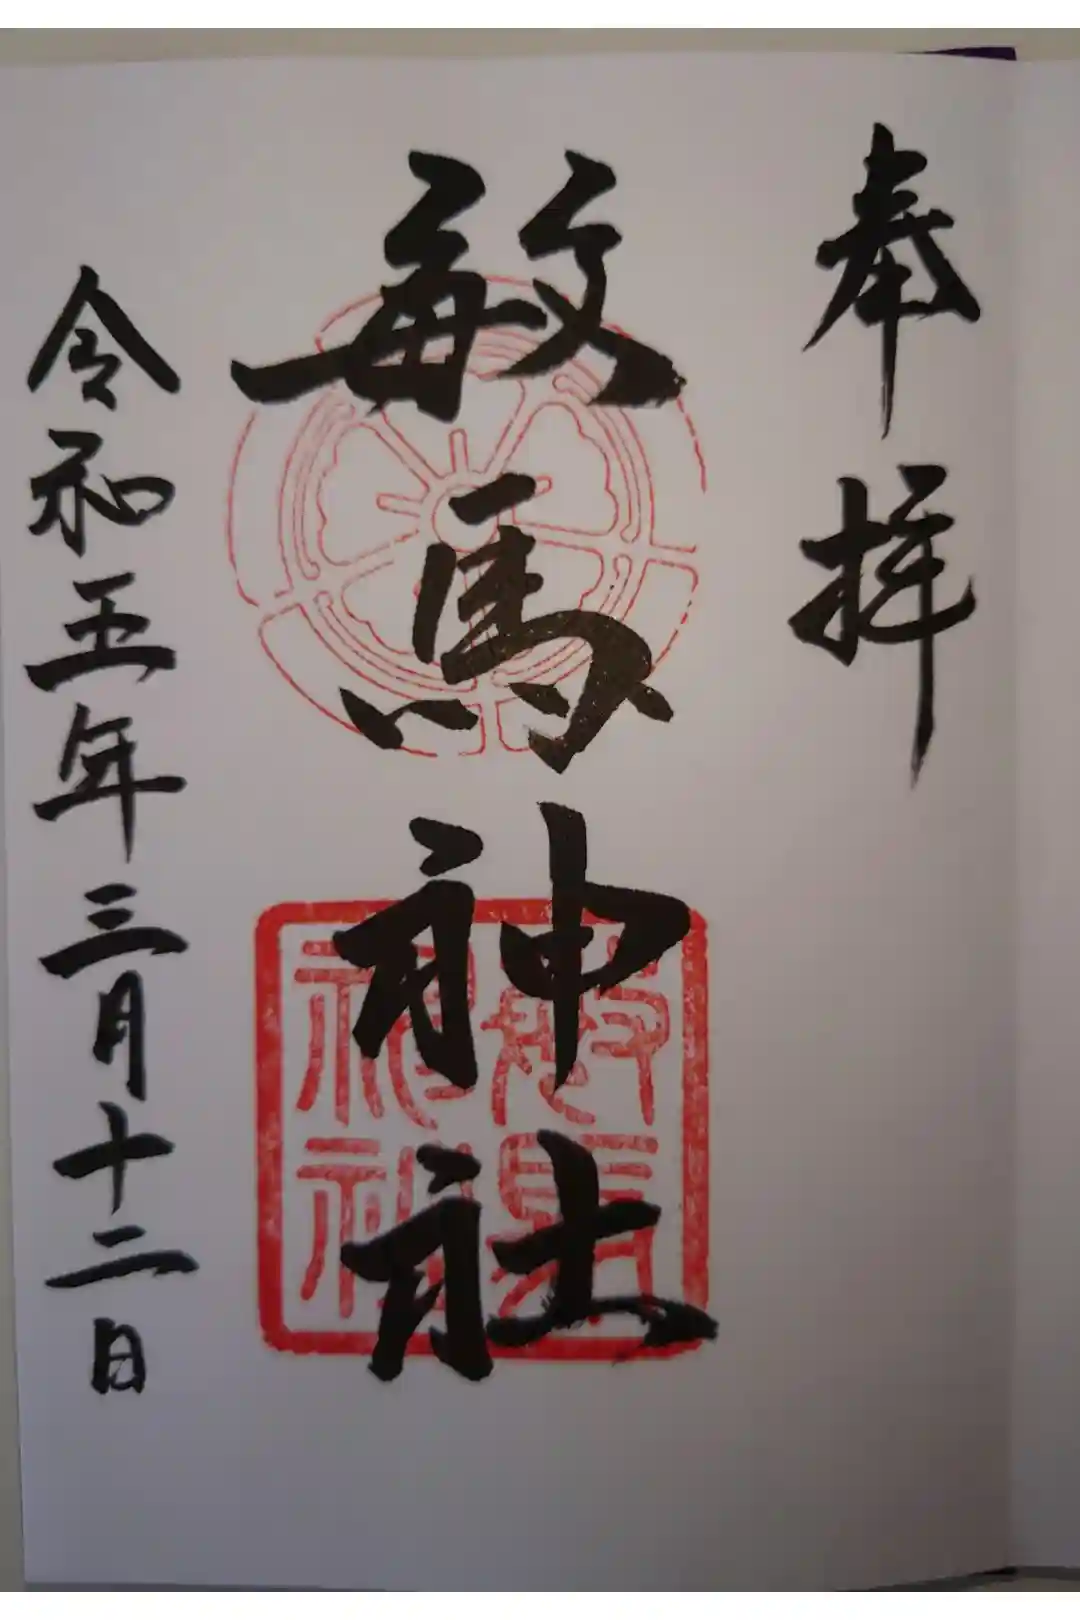 奉拝
敏馬神社
敏馬神社
令和五年三月十二日